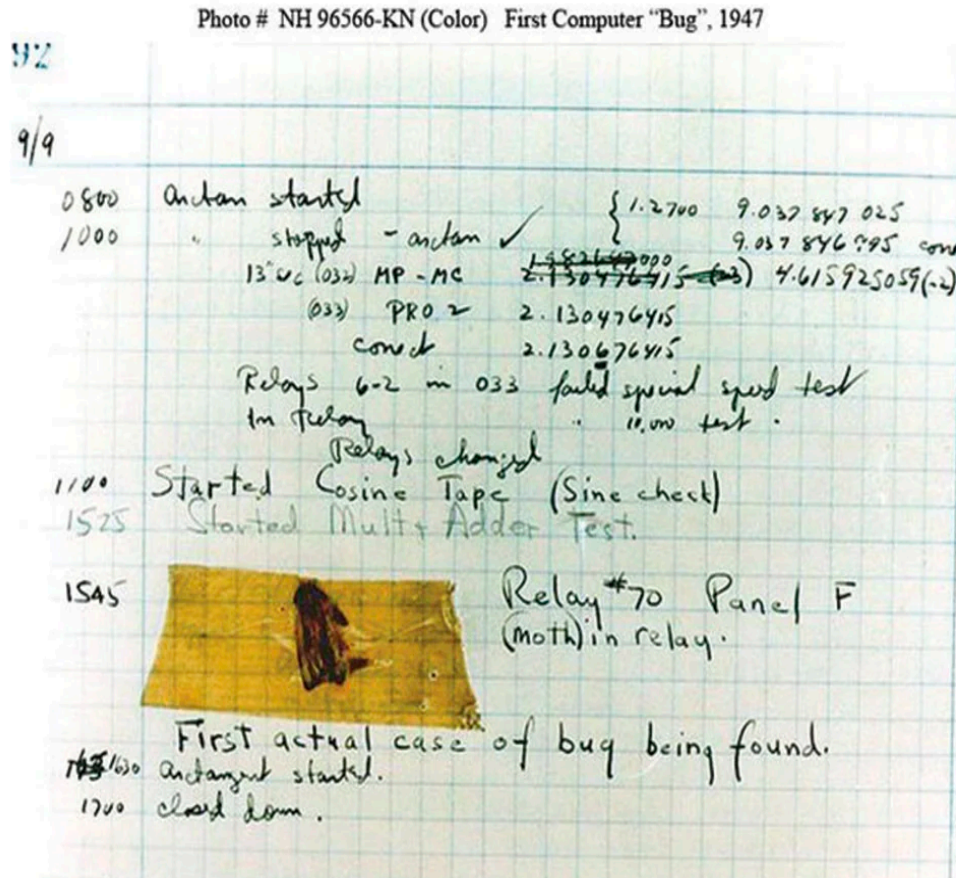 Photo # NH 96566-KN (Color) First Computer “Bug”, 1947
92
9/9
0800 Antan started { 1.2700 9.037 847 025
1000 " stopped - antan ✓ 9.037 846 995 conect
13"uc (032) MP - MC 2.130476415 (-3) 4.615925059(-2)
(033) PRO 2 2.130476415
conect 2.130676415
Relays 6-2 in 033 failed special speed test
In Relay " 10,000 test .
Relays changed
1100 Started Cosine Tape (Sine check)
1525 Started Mult + Adder Test.
1545 Relay #70 Panel F
(moth) in relay.
First actual case of bug being found.
1630 Antangent started.
1700 closed down.